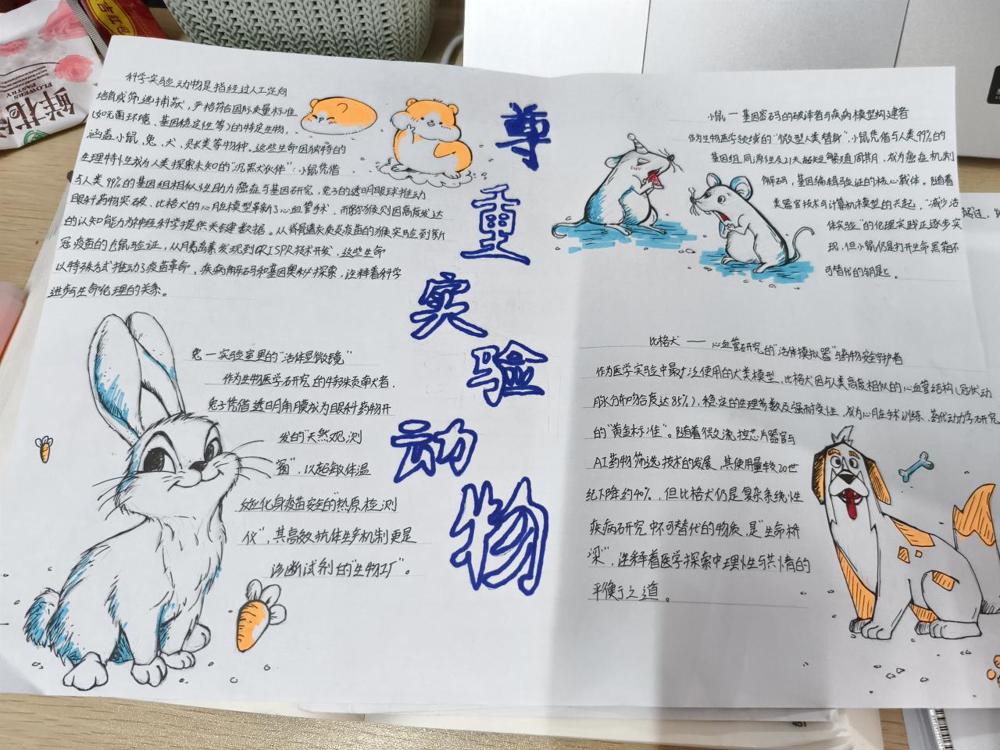 尊重实验动物
科学实验动物是指经过人工定向
培育或筛选捕获,严格符合国际质量标准
(如无菌环境、基因稳定性等)的特定生物,
涵盖小鼠、兔、犬、灵长类等物种,这些生命因独特的
生理特性成为人类探索未知的“沉默大伙伴”:小鼠凭借
与人类99%的基因组相似性助力癌症与基因研究,兔子的透明眼球推动
眼科药物突破,比格犬的心脏模型革新了心血管手术,而猕猴则因高度发达
的认知能力为神经科学提供关键数据。从脊髓灰质炎疫苗的猴实验到新
冠疫苗的鼠验证,从胰岛素发现到CRISPR技术开发,这些生命
以特殊方式推动了疫苗革命、疾病解码和基因奥秘探索,诠释着科学
进步与生命伦理的关系。
小鼠—基因密码的破译者与疾病模型构建者
作为生物医学领域的“微型人类替身”,小鼠凭借与人类99%的
基因组同源性及21天超短繁殖周期,成为癌症机制
解码,基因编辑验证的核心载体。随着
类器官技术与计算机模型的兴起,“减少活
体实验”的伦理实践正逐步实
现,但小鼠仍是打开生命黑箱不
可替代的钥匙。
兔—实验室里的“活体显微镜”
作为生物医学研究的特殊贡献者,
兔子凭借透明角膜成为眼科药物开
发的“天然观测
窗”,以超敏体温
变化化身疫苗安全的“热原检测
仪”,其高效抗体生产机制更是
诊断试剂的“生物工厂”。
比格犬——心血管研究的“活体模拟器”与药物安全守护者
作为医学实验中最广泛使用的犬类模型,比格犬因与人类高度相似的心血管结构(冠状动
脉分布吻合度达85%)、稳定的生理参数及强耐受性,成为心脏手术训练、药代动力学研究
的“黄金标准”。随着微流控芯片器官与
AI药物筛选技术的发展,其使用量较20世
纪下降约40%,但比格犬仍是复杂系统性
疾病研究中不可替代的物质,是“生命桥
梁”,诠释着医学探索中理性与共情的
平衡之道。
鲜花
FLOWERS